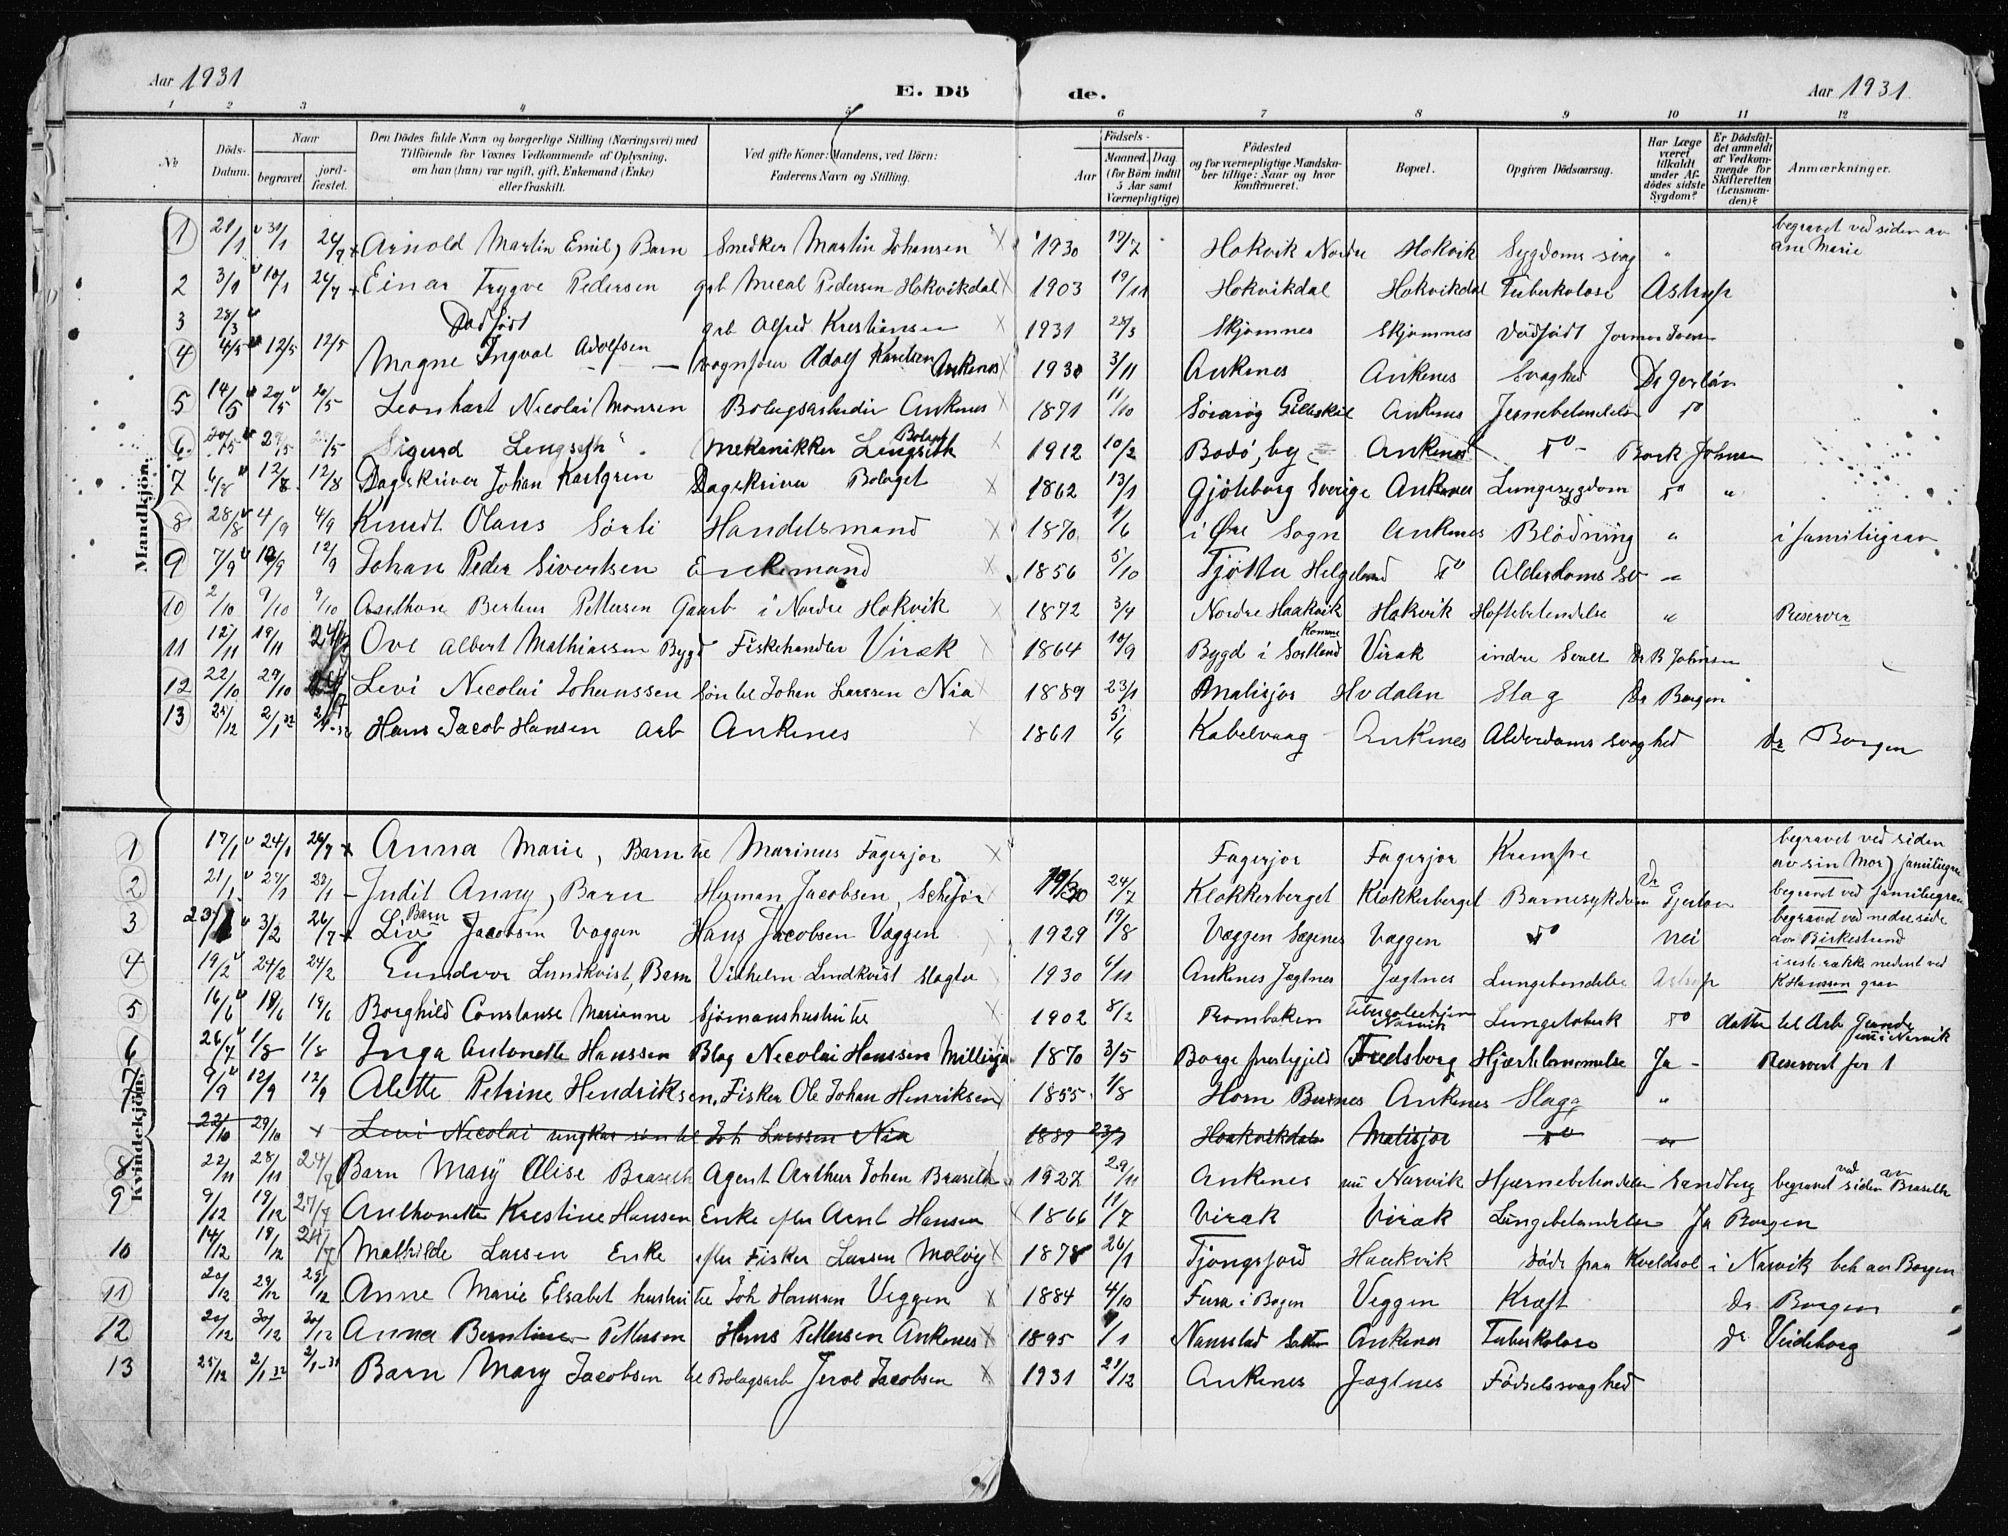 Aar 1931
E. Dö
de.
Aar 1931.
1 2 3 4 5 6 7 8 9 10 11 12
No
Döds-
Datum.
Naar
begravet.
jord-
fæstet.
Den Dödes fulde Navn og borgerlige Stilling (Næringsvei) med
Tilföiende for Voxnes Vedkommende af Oplysning,
om han (hun) var ugift, gift, Enkemand (Enke)
eller fraskilt.
Ved gifte Koner: Mandens, ved Börn:
Faderens Navn og Stilling.
Födsels-
Aar
Maaned. Dag.
(for Börn indtil
5 Aar samt
Værnepligtige)
Födested
og for værnepligtige Mandska-
ber tillige: Naar og hvor
konfirmeret.
Bopæl.
Opgiven Dödsaarsag.
Har Læge
været
tilkaldt
under Af-
dödes sidste
Sygdom?
Er Dödsfal-
det anmeldt
af Vedkom-
mende for
Skifteretten
(Lensman-
den)?
Anmærkninger.
Mandkjön.
1 21/1 31/1 26/7 Arnold Martin Emil, Barn Snedker Martin Johansen 1930 19/7 Hokvik Nordre Hokvik Sygdoms svag " begravet ved siden av
ane Marie
2 3/1 10/1 26/7 Einar Trygve Pedersen grb Mical Pedersen Hokvikdal 1903 19/11 Hokvikdal Hokvikdal Tuberkolose Astrup
3 28/3 Dødfødt grb Alfred Kristiansen 1931 28/3 Skjomnes Skjomnes Dødfødt
4 4/5 12/5 12/5 Magne Ingval Adolfsen Vognfører Adolf Karelsen Ankenes 1930 3/11 Ankenes Ankenes Svaghed Dr
5 14/5 20/5 20/5 Leonhart Nicolai Monsen Ankenes 1871 11/10 Ankenes
6 20/5 29/5 29/5 Sigurd Lengseth Mekanikker Lengseth 1912 10/2 Bodö, by Ankenes Do Bork Johnsen
7 6/8 12/8 12/8 Dagskriver Johan Karlgren Dagskriver Bolaget 1862 13/1 Gjöteborg Sverige Ankenes Lungesygdom Do "
8 28/8 4/9 4/9 Knudt Olaus Sörli Handelsmand 1870 1/6 i Øre Sogn Ankenes Blödning " i familiegrav
9 7/9 12/9 12/9 Johan Peder Sivertsen Enkemand 1856 5/10 Tjøtta Helgeland Do Alderdoms sv "
10 2/10 9/10 9/10 Berteus Pettersen Gaarb i Nordre Hokvik 1872 3/4 Nordre Haakvik Hokvik Hoftebetendelse " Reserver
11 12/11 19/11 24/7 Ove Albert Mathiassen Bygd Fiskehandler Viræk 1864 10/9 Bygd i Sortland Komune Virak indre Dr B Johnsen
12 22/10 29/10 24/7 Levi Nicolai Johanssen Sön til Johan Larssen Nia 1889 23/1 Matisjor Hvdalen Slag Dr Borgen
13 25/12 2/1 32 Hans Jacob Hansen arb Ankenes 1861 5/6 Kabelvaag Ankenes Alderdoms svaghed Dr Borgen
Kvindekjön.
1 17/1 24/1 26/7 Anna Marie, Barn til Marinus Fagerjor Fagerjor Fagerjor Krampe begravet ved siden
av sin Mor familiegrav
2 21/1 29/1 29/1 Judit Anny, Barn Herman Jacobsen, 1930 24/7 Klokkerberget Klokkerberget Barnesykdom Dr Gjerløw begravet ved familiegrav
3 3/2 26/7 Liv Barn Jacobsen Vaggen Hans Jacobsen Vaggen 1929 19/8 Væggen Vaggen Do Nei begravd ved nedre side
av Birkestrand
4 19/2 24/2 24/2 Gundvor Lundkvist, Barn Vilhelm Lundkvist Slagter 1930 6/11 Ankenes Jægtnes Jægtnes Lungebendelse Astrup i seste række nedent ved
K Hanssen grav
5 16/6 19/6 19/6 Borghild Constanse Marianne Sjömanshustru 1902 8/2 Trombaken Narvik Lungetoberk Do datter til Arb
6 26/7 1/8 1/8 Inga Antonette Hanssen Blag Nicolai Hanssen 1870 3/5 Borge prestgjeld Fredsborg Hjærtelammelse Ja - Reservert for 1
7 9/9 12/9 12/9 Alette Petrine Hendriksen, Fisker Ole Johan Henriksen 1855 1/8 Horn Ankenes Slag "
22/10 29/10 x Levi Nicolai ungkar sön til Joh Larssen Nia 1889 23/1 Haakvikdalen Matisjor Do "
8 22/11 28/11 24/7 Barn Mary Alise Braseth Agent Arthur Johan Braseth 1927 29/11 Ankenes nu Narvik Hjærnebetendelse Sandberg begravet ved siden av Braseth
9 9/12 19/12 27/7 Anthonette Krestine Hansen Enke efter Arnt Hansen 1866 11/7 Virak Virak Lungebetandelse Ja Borgen
10 14/12 19/12 24/7 Mathilde Larsen Enke efter Fisker Larsen Meløy 1878 26/1 Tjongsfjord Haakvik døde paa Kveldsol i Narvik beh av Borgen
11 20/12 29/12 29/12 Anne Marie Elsabet hustru til Joh Hanssen Veggen 1884 4/10 Furu i Bogen Veggen Kræft Dr Borgen
12 20/12 30/12 30/12 Anna Berntine Pettersen Hans Pettersen Ankenes 1895 1/1 Ankenes Tuberkolose dr
13 25/12 2/1 32 Barn Mary Jacobsen til Bolagsarb Jacobsen 1931 21/12 Ankenes Jægtnes Födselssvaghed